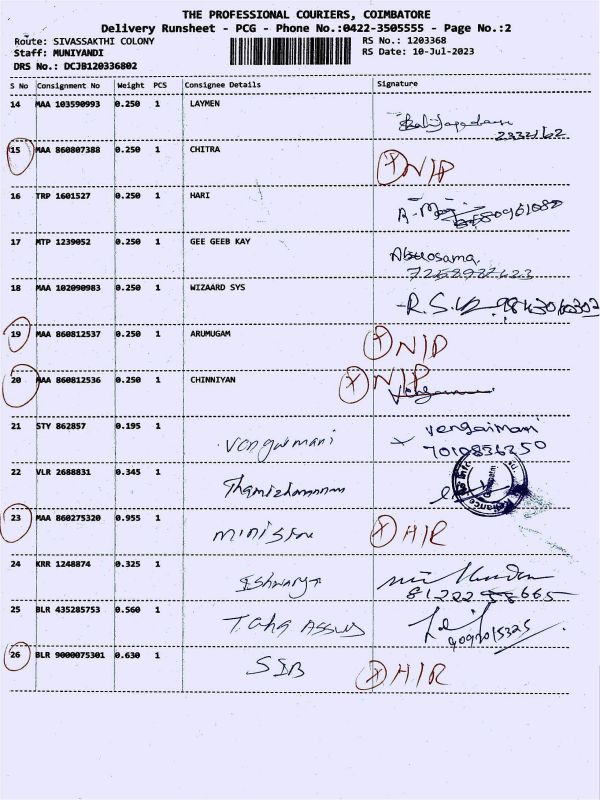 THE PROFESSIONAL COURIERS, COIMBATORE
Delivery Runsheet - PCG - Phone No.:0422-3505555 - Page No.:2
Route: SIVASSAKTHI COLONY RS No.: 1203368
Staff: MUNIYANDI RS Date: 10-Jul-2023
DRS No.: DCJB120336802
S No Consignment No Weight PCS Consignee Details Signature
14 MAA 103590993 0.250 1 LAYMEN
2332162
15 MAA 860807388 0.250 1 CHITRA X N/D
16 TRP 1601527 0.250 1 HARI
17 MTP 1239052 0.250 1 GEE GEEB KAY Abuosama
18 MAA 102090983 0.250 1 WIZAARD SYS
19 MAA 860812537 0.250 1 ARUMUGAM X N/D
20 MAA 860812536 0.250 1 CHINNIYAN X N/D
21 STY 862857 0.195 1 Vengaimani Vengaimani
7010836250
22 VLR 2688831 0.345 1
23 MAA 860275320 0.955 1 X H/R
24 KRR 1248874 0.325 1
25 BLR 435285753 0.560 1
26 BLR 9000075301 0.630 1 SIB X H/R